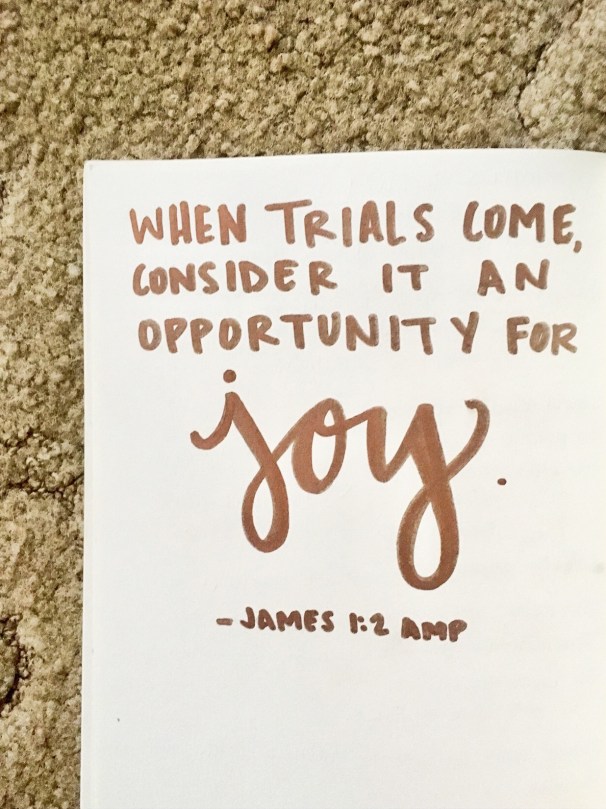 WHEN TRIALS COME,
CONSIDER IT AN
OPPORTUNITY FOR
joy.
- JAMES 1:2 AMP